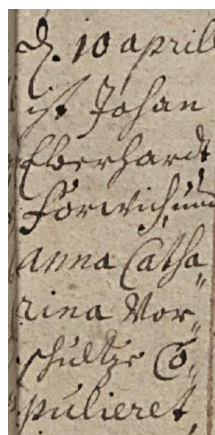 d. 10 aprill
ist Johan
Eberhardt
Förwich, und
anna Catha„
rina Vor„
schultze Co„
pulieret,